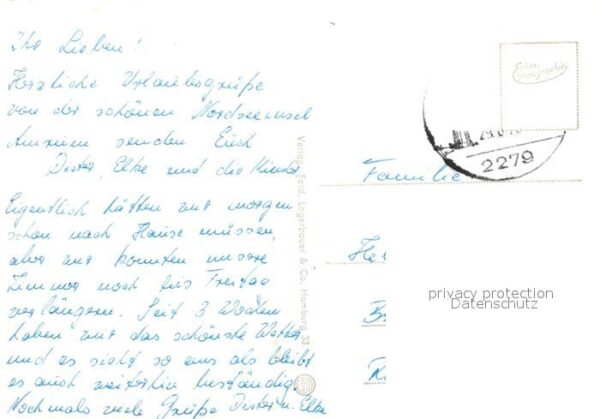 Ihr Lieben!
Herzliche Urlaubsgrüße
von der schönen Nordseeinsel
Amrum senden Euch
Dieter, Elke und die Kinder
Eigentlich hätten wir morgen
schon nach Hause müssen,
aber wir konnten unsere
Zimmer noch bis Freitag
verlängern. Seit 3 Wochen
haben wir das schönste Wetter
und es sieht so aus als bleibt
es auch weiterhin beständig.
Nochmals viele Grüße Dieter u. Elke
Verlag Ferd. Lagerbauer & Co., Hamburg 33
2279
Familie
privacy protection
Datenschutz